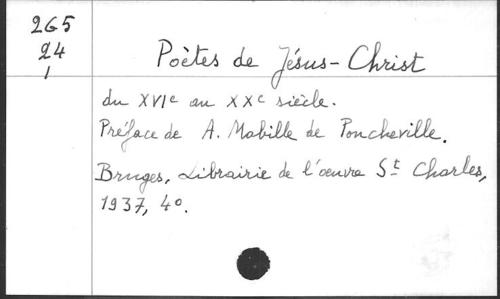 265
24
1
Poètes de Jésus-Christ
du XVIe au XXe siècle.
Préface de A. Mabille de Poncheville.
Bruges, Librairie de l'œuvre St Charles,
1937, 4o.